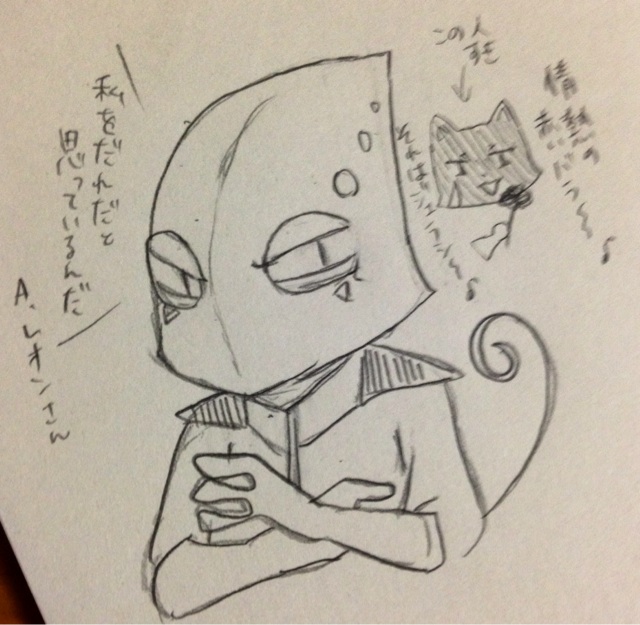 この人
すき
情熱の
赤いバラ〜〜♪
それはジェラシ〜〜♪
私をだれだと
思っているんだ
A.レオンさん